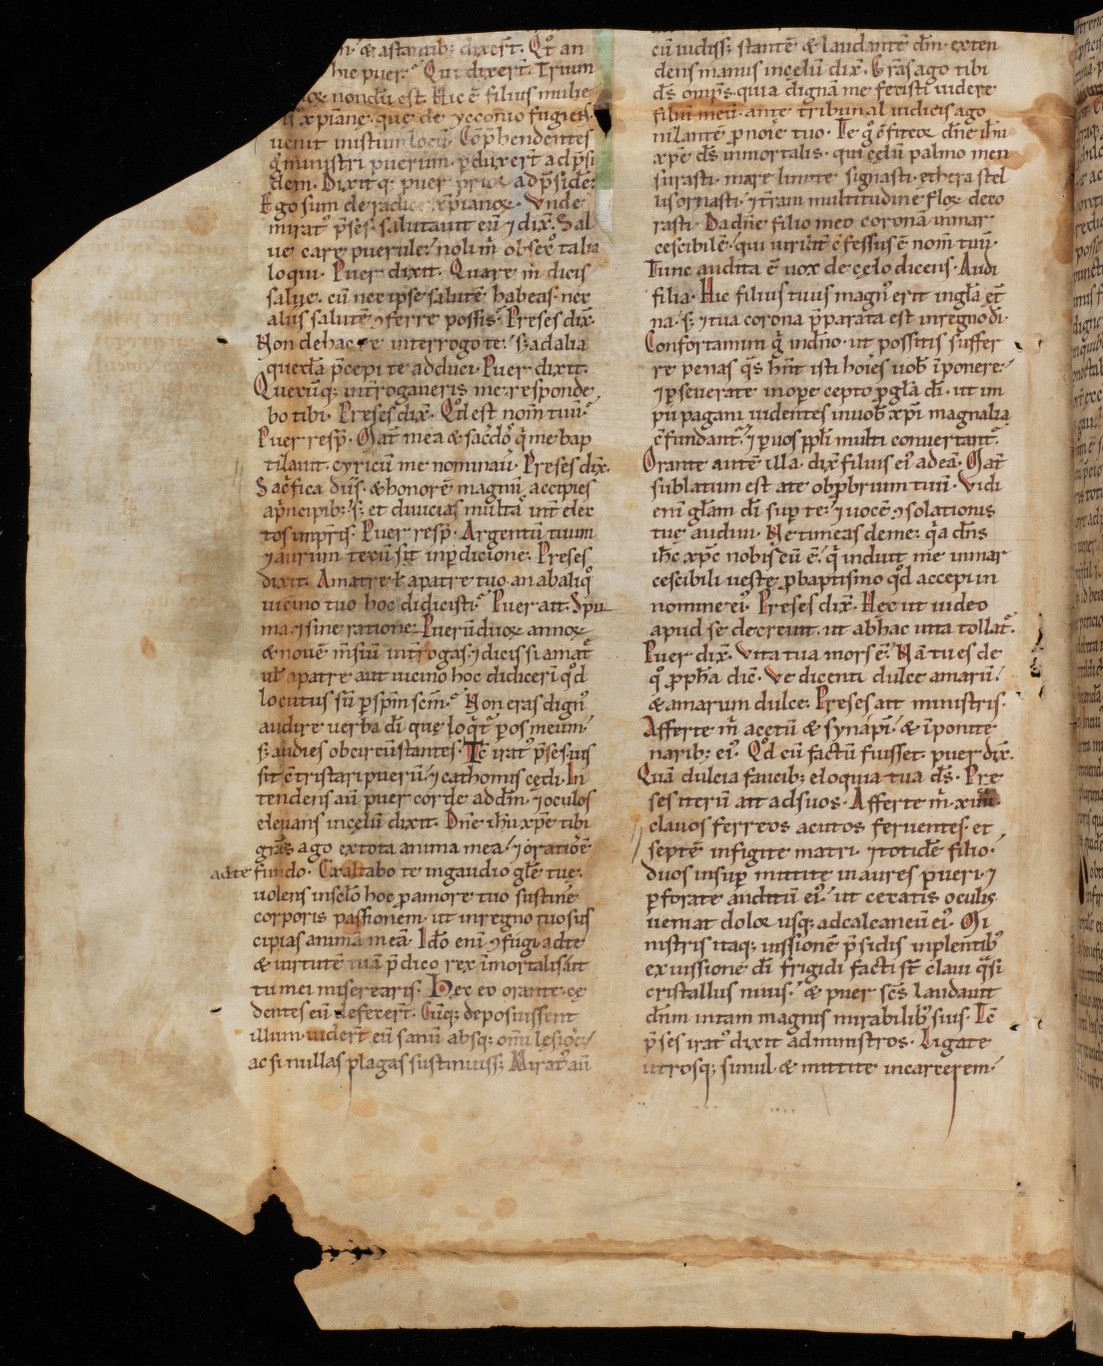 & astantib; dixer̄t. Qd̄ an
hic puer? Qui dixer̄t. Trium
nondū est. Hic ē filius mulie
xp̄ianę. que de yconio fugiens
uenit in istum locū. Cōp̄hendentes
ḡ ministri puerum. p̄duxer̄t ad p̄si
dem. Dixitq; puer prior ad p̄sidē:
Ego sum de radice xp̄ianoꝝ. Vnde
mirat᷒ p̄ses. salutauit eū ⁊ dix̄. Sal
ue care puerule. noli m̄ obsec̄ talia
loqui. Puer dixit. Quare m̄ dicis
salue. cū nec ipse salutē habeas. nec
alus salutē ꝯferre possis. Preses dix̄.
Non de hac re interrogo te. s; ad alia
querēla p̄cepi te adduci. Puer dixit.
Quecūq; int̄rogaueris me. responde
bo tibi. Preses dix̄. Qd̄ est nom̄ tuū?
Puer resp̄. Mat̄ mea & sacdo᷒ q̄ me bap
tizauit. cyricū me nominaū. Preses dix̄.
Sac̄fica diis. & honorē magnū accipies
a p̄ncipib;. s; et diuicias multa᷒ int̄ elec
tos imp̄ris. Puer resp̄. Argentū tuum
⁊ aurum tecū sit in p̄dicione. Preses
dixit. A matre ł a patre tuo. an ab aliq᷒
uicino tuo hoc didicisti? Puer ait. Spu
ma. ⁊ sine ratione. Puerū duoꝝ annoꝝ
& nouē m̄siū int̄rogas. ⁊ dicis si a mat᷒
uł a patre aut uicino hoc didicerī qd̄
locutus sū p sp̄m scm̄? Non eras dign᷒
audire uerba dī que loq̄t᷒ p os meum.
s; audies ob circūstantes. Tc̄ irat᷒ p̄ses. ius
sit ētristari puerū. ⁊ cathomis cędi. In
tendens aū puer corde ad dm̄. ⁊ oculos
eleuans in cęlū dixit. Dn̄e ih̄u xp̄e tibi
gr̄as ago ex tota anima mea. ⁊ oratiōē
ad te fundo. Exaltabo te in gaudio głe tuę.
uolens in sclo hoc p amore tuo sustinē
corporis passionem. ut in regno tuo sus
cipias animā meā. Ido enī ꝯfugi ad te
& uirtutē tuā p̄dico rex īmortalis. ait
tu mei miserearis. Hec eo orante. ce
dentes eū defecer̄t. Cūq; deposuissent
illum. uider̄t eū sanū absq; omī lęsioē
ac si nullas plagas sustinuiss;. Mirat᷒ aū
cū iudiss; stantē & laudantē dm̄. exten
dens manus in cęlū dix̄. Gr̄as ago tibi
ds̄ omps̄. quia dignā me fecisti uidere
filiū meū ante tribunal iudicis ago
nizantē p noīe tuo. Te q᷒ ꝯfiteoꝛ dn̄e ih̄u
xp̄e ds̄ inmortalis. qui cęlū palmo men
surasti. mare limite signasti. ethera stel
lis ornasti. ⁊ t̄ram multitudinē floꝝ deco
rasti. Da dn̄e filio meo coronā inmar
cescibilē. qui uirilit̄ ꝯfessus ē nom̄ tuū.
Tunc audita ē uox de cęlo dicens. Audi
filia. Hic filius tuus magn᷒ erit in gl̄a et̄
na. s; ⁊ tua corona p̄parata est in regno dī.
Confortamini ḡ in dn̄o. ut possitis suffer
re penas q̄s hn̄t isti hoīes uob̄ īponere.
⁊ pseuerate in ope cepto p gl̄a dī. ut im
pii pagani uidentes in uob̄ xp̄i magnalia
ꝯfundant᷒. ⁊ p uos ppl̄i multi conuertant᷒.
Orante autē illa. dix̄ filius ei᷒ ad eā. Mat̄
sublatum est a te obp̄brium tuū. Vidi
enī gl̄am dī sup te. ⁊ uocē ꝯsolationis
tuę audiui. Ne timeas de me. q̄a dn̄s
ih̄c xp̄c nobiscū ē. q̄ induit me inmar
cescibili ueste. p baptismo qd̄ accepi in
nomine ei᷒. Preses dix̄. Hec ut uideo
apud se decreuit. ut ab hac uita tollat᷒.
Puer dix̄. Vita tua mors ē. Nā tu es de
q᷒ pph̄a dic̄. Ve dicenti dulce amarū.
& amarum dulce. Preses ait ministris.
Afferte m̄ acetū & synapī. & īponite
narib; ei᷒. Qd̄ cū factū fuisset. puer dix̄.
Quā dulcia faucib; eloquia tua ds̄. Pre
ses iterū ait ad suos. Afferte m̄ xiiii
clauos ferreos acutos feruentes. et
septē infigite matri. ⁊ totidē filio.
duos insup mittite in aures pueri. ⁊
pforate auditū ei᷒. ut cecatis oculis
ueniat doloꝛ usq; ad calcaneū ei᷒. Mi
nistris itaq; iussionē p̄sidis inplentib᷒
ex iussione dī frigidi facti st̄ claui q̄si
cristallus niuis. & puer scs̄ laudauit
dn̄m in tam magnis mirabilib᷒ suis. Tc̄
p̄ses irat᷒ dixit ad ministros. Ligate
utrosq; simul. & mittite in carcerem.